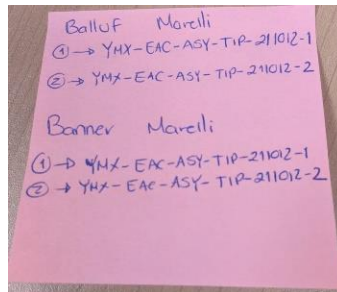 Balluf Marelli
① → YMX-EAC-ASY-TIP-211012-1
② → YMX-EAC-ASY-TIP-211012-2
Banner Marelli
① → YMX-EAC-ASY-TIP-211012-1
② → YMX-EAC-ASY-TIP-211012-2